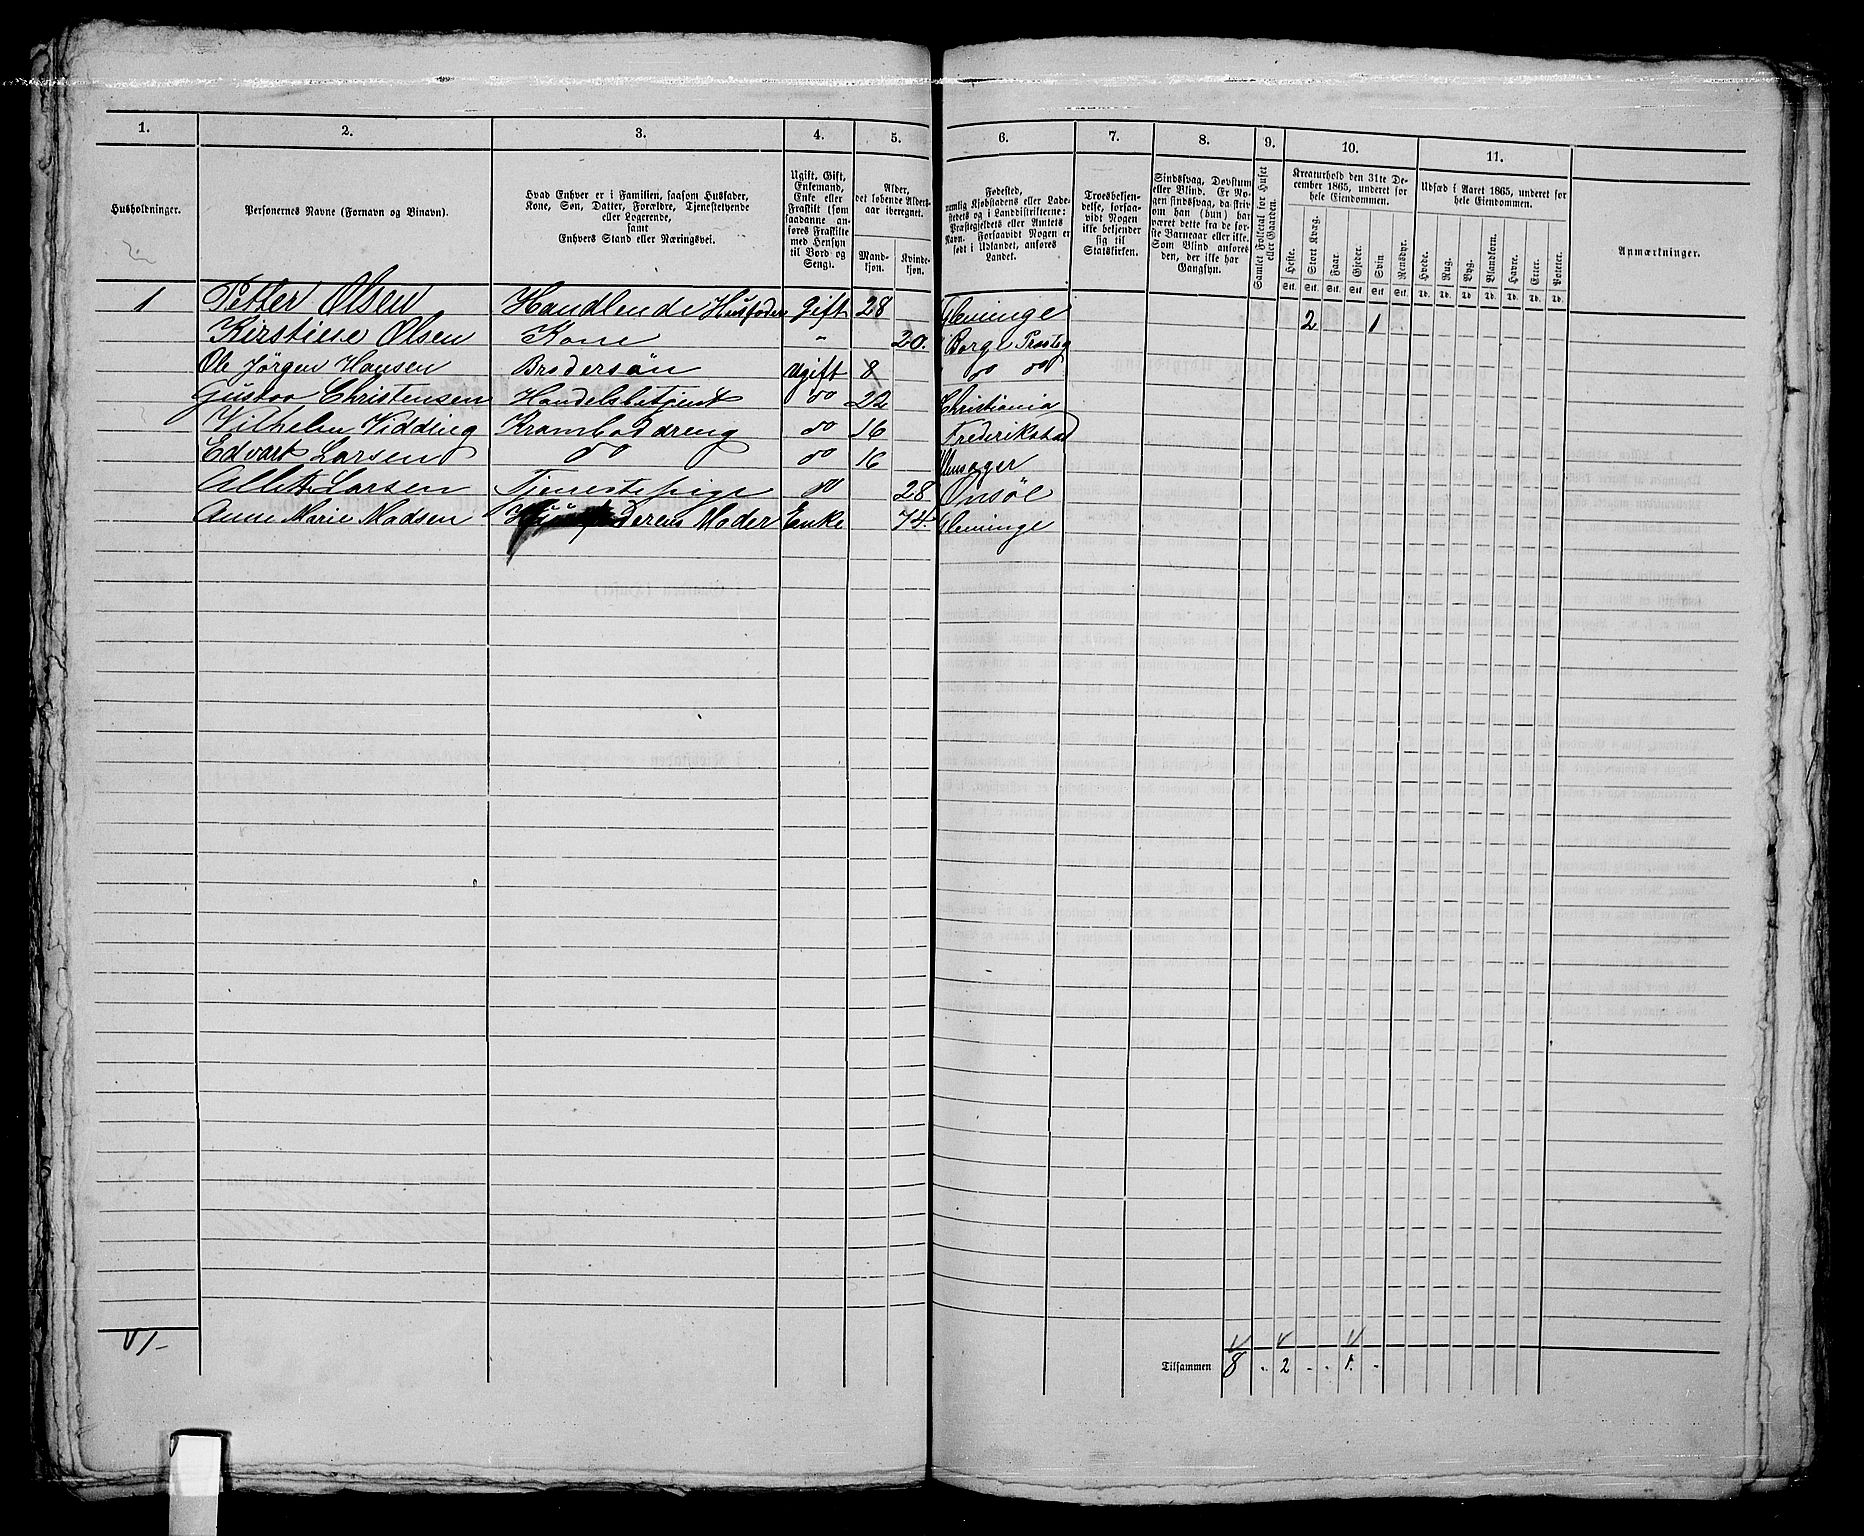 1. 2. 3. 4. 5. 6. 7. 8. 9. 10. 11.
Husholdninger.
Personernes Navne (Fornavn og Binavn).
Hvad Enhver er i Familien, saasom Husfader,
Kone, Søn, Datter, Forældre, Tjenestetyende
eller Logerende,
samt
Enhvers Stand eller Næringsvei.
Ugift, Gift,
Enkemand,
Enke eller
Fraskilt (som
saadanne an-
føres Fraskilte
med Hensyn
til Bord og
Seng).
Alder,
det løbende Alders-
aar iberegnet.
Mand-
kjøn.
Kvinde-
kjøn.
Fødested,
nemlig Kjøbstadens eller Lade-
stedets og i Landdistrikterne:
Præstegjældets eller Amtets
Navn. Forsaavidt Nogen er
født i Udlandet, anføres
Landet.
Troesbekjen-
delse, forsaa-
vidt Nogen
ikke bekjender
sig til
Statskirken.
Sindssvag, Døvstum
eller Blind. Er No-
gen sindssvag, da skriv
om han (hun) har
været dette fra de før-
ste Barneaar eller ikke.
Som Blind anføres
den, der ikke har
Gangsyn.
Samlet Folketal for Huset
eller Gaarden.
Kreaturhold den 31te De-
cember 1865, underet for
hele Eiendommen.
Heste. Stort Kvæg. Faar. Gjeder. Svin. Rensdyr.
Stk. Stk. Stk. Stk. Stk. Stk.
Udsæd i Aaret 1865, underet for
hele Eiendommen.
Hvede. Rug. Byg. Blandkorn. Havre. Erter. Poteter.
Td. Td. Td. Td. Td. Td. Td.
Anmærkninger.
1 Petter Olsen Handlende Husfader gift 28 Gleminge 2 1
Kirstine Olsen Kone " 20. Borge Præsteg
Ole Jørgen Hansen Brodersøn ugift 8 do do
Gustav Christensen Handelsbetjent do 22 Christiania
Vilhelm Vidding Kramboddreng do 16 Frederikstad
Edvart Larsen do do 16
Larsen Tjenestepige do 28 Onsöe
Anne Marie Madsen Husfaderens Moder Enke 74. Gleminge
1
Tilsammen 8 " 2 - - 1. -